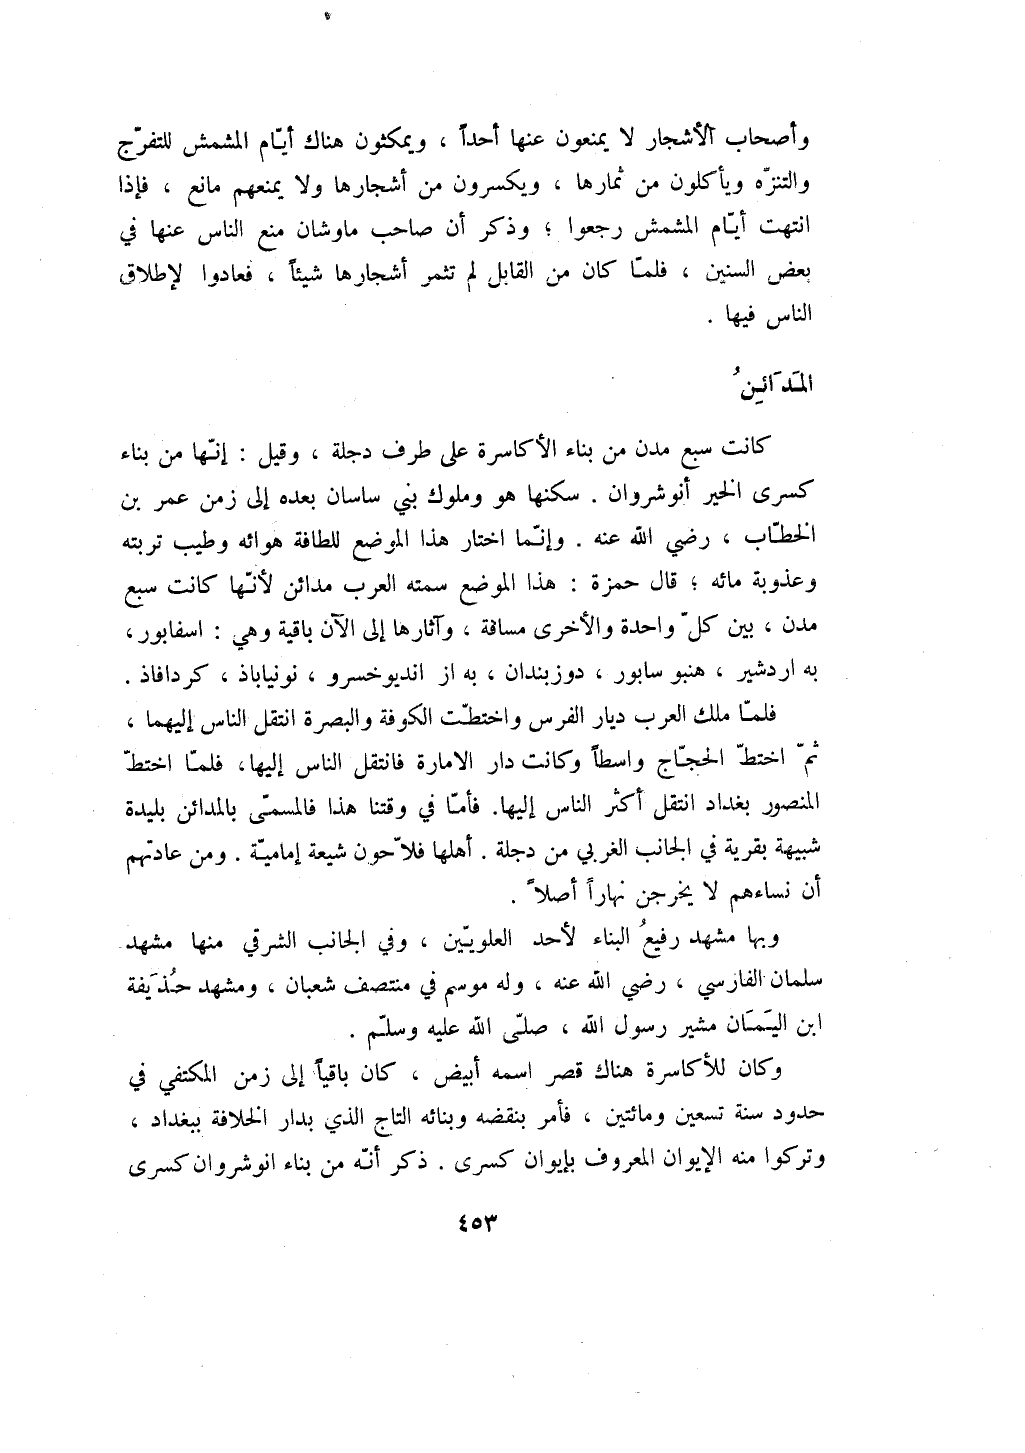 وأصحاب الأشجار لا يمنعون عنها أحداً ، ويمكثون هناك أيّام المشمش للتفرّج
والتنزّه ويأكلون من ثمارها ، ويكسرون من أشجارها ولا يمنعهم مانع ، فإذا
انتهت أيّام المشمش رجعوا ؛ وذكر أن صاحب ماوشان منع الناس عنها في
بعض السنين ، فلمّا كان من القابل لم تثمر أشجارها شيئاً ، فعادوا لإطلاق
الناس فيها .
المَدَائِنُ
كانت سبع مدن من بناء الأكاسرة على طرف دجلة ، وقيل : إنّها من بناء
كسرى الخير أنوشروان . سكنها هو وملوك بني ساسان بعده إلى زمن عمر بن
الخطّاب ، رضي الله عنه . وإنّما اختار هذا الموضع للطافة هوائه وطيب تربته
وعذوبة مائه ؛ قال حمزة : هذا الموضع سمته العرب مدائن لأنّها كانت سبع
مدن ، بين كلّ واحدة والأخرى مسافة ، وآثارها إلى الآن باقية وهي : اسفابور ،
به اردشير ، هنبو سابور ، دوزبندان ، به از انديوخسرو ، نونياباذ ، كردافاذ .
فلمّا ملك العرب ديار الفرس واختطّت الكوفة والبصرة انتقل الناس إليهما ،
ثمّ اختطّ الحجّاج واسطاً وكانت دار الامارة فانتقل الناس إليها، فلمّا اختطّ
المنصور بغداد انتقل أكثر الناس إليها. فأمّا في وقتنا هذا فالمسمّى بالمدائن بليدة
شبيهة بقرية في الجانب الغربي من دجلة . أهلها فلاّحون شيعة إماميّة . ومن عادتهم
أن نساءهم لا يخرجن نهاراً أصلاً .
وبها مشهد رفيعُ البناء لأحد العلويّين ، وفي الجانب الشرقي منها مشهد
سلمان الفارسي ، رضي الله عنه ، وله موسم في منتصف شعبان ، ومشهد حُذَيفة
ابن اليَمَان مشير رسول الله ، صلّى الله عليه وسلّم .
وكان للأكاسرة هناك قصر اسمه أبيض ، كان باقياً إلى زمن المكتفي في
حدود سنة تسعين ومائتين ، فأمر بنقضه وبنائه التاج الذي بدار الخلافة ببغداد ،
وتركوا منه الإيوان المعروف بإيوان كسرى . ذكر أنّه من بناء انوشروان كسرى
٤٥٣